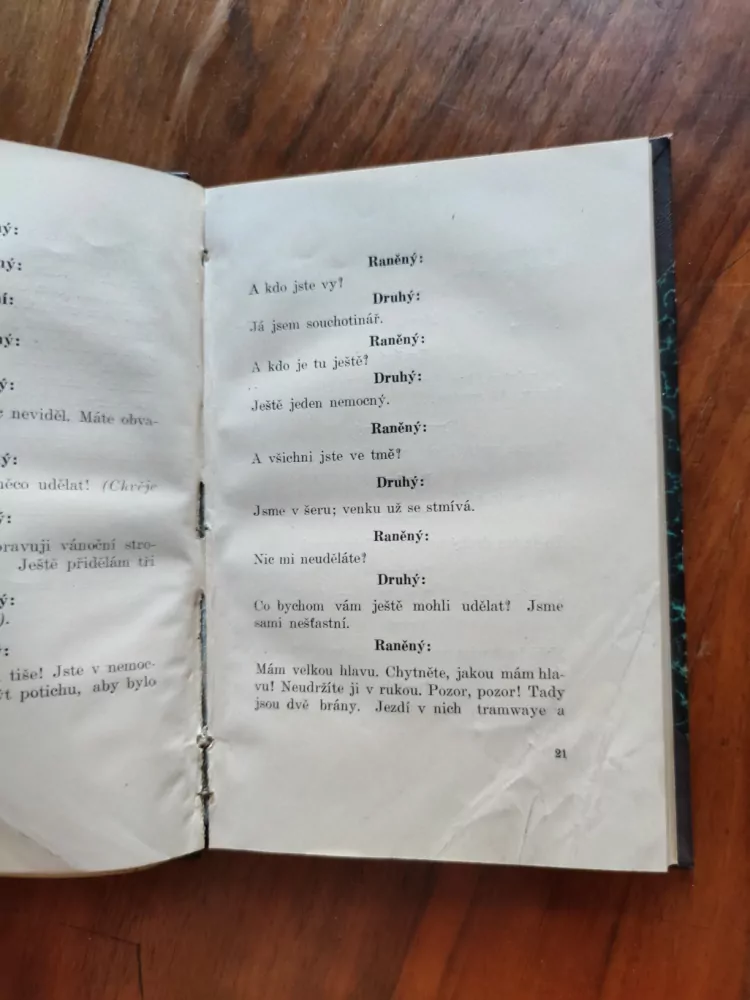 neviděl. Máte obva-
něco udělat! (Chvěje
pravuji vánoční stro-
Ještě přidělám tři
tiše! Jste v nemoc-
potichu, aby bylo
Raněný:
A kdo jste vy?
Druhý:
Já jsem souchotinář.
Raněný:
A kdo je tu ještě?
Druhý:
Ještě jeden nemocný.
Raněný:
A všichni jste ve tmě?
Druhý:
Jsme v šeru; venku už se stmívá.
Raněný:
Nic mi neuděláte?
Druhý:
Co bychom vám ještě mohli udělat? Jsme
sami nešťastní.
Raněný:
Mám velkou hlavu. Chytněte, jakou mám hla-
vu! Neudržíte ji v rukou. Pozor, pozor! Tady
jsou dvě brány. Jezdí v nich tramwaye a
21